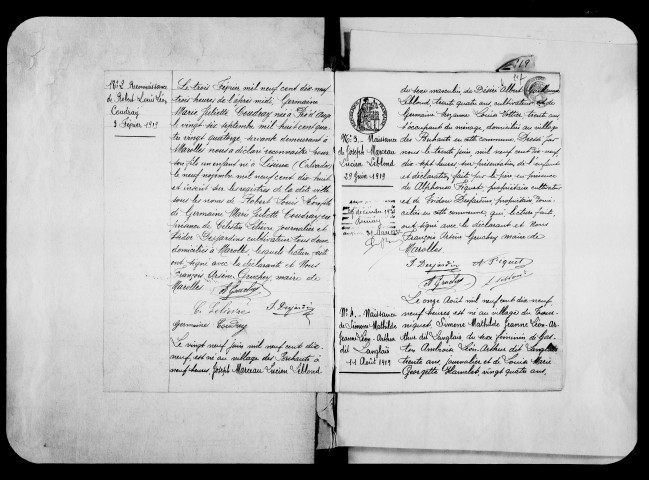 N° 2 Reconnaissance
de Robert Louis Léo
Coudray
3 Février 1919
Le trois Février mil neuf cent dix-neuf
trois heures de l'après midi, Germaine
Marie Juliette Coudray née à
le vingt dix septembre mil huit cent quatre
vingt quatorze servante demeurant à
Marolles nous a déclaré reconnaître pour
son fils un enfant né à Lisieux (Calvados)
le neuf novembre mil neuf cent dix-huit
et inscrit sur les registres de la dite ville
sous les noms de Robert Louis
de Germaine Marie Juliette Coudray en
présence de Célestin Lelièvre journalier et
Isidor Desjardins cultivateur tous deux
domiciliés à Marolles, lesquels lecture faite
ont signé avec le déclarant et Nous
François Arsène Gruchey, maire de
Marolles
A Gruchey
C. Lelièvre J. Desjardins
germaine Coudray
Le vingt neuf juin mil neuf cent dix-
neuf, est né au village des à
neuf heures Joseph Marceau Lucien Leblond
N° 3 - Naissance
de Joseph Marceau
Lucien Leblond
29 Juin 1919
du sexe masculin de Désiré Albert
Leblond, trente quatre ans, cultivateur et de
Germaine Suzanne Louise Pottier, trente ans
s'occupant du ménage, domiciliés au village
des en cette commune. Dressé par
nous le trente juin, mil neuf cent dix-neuf
dix-sept heures sur présentation de l'enfant
et déclaration faite par le père en présence
de Alphonse Piquet, propriétaire cultivateur
et de Desjardins, propriétaire domi-
ciliés en cette commune, qui, lecture faite,
ont signé avec le déclarant et Nous
François Arsène Gruchey maire de
Marolles
J. Desjardins A. Piquet
A Gruchey Leblond
N° 4 - Naissance
de Simone-Mathilde
Jeanne Léon-Arthur
dit Langlais
11 Août 1919
Le onze Août mil neuf cent dix neuf
neuf heures est née au village du
Simone Mathilde Jeanne Léon-Ar-
thur dit Langlais du sexe féminin de Gas-
ton Ambroise Léon-Arthur dit Langlais
trente ans, journalier et de Louise Marie
Georgette Hamelet, vingt quatre ans,